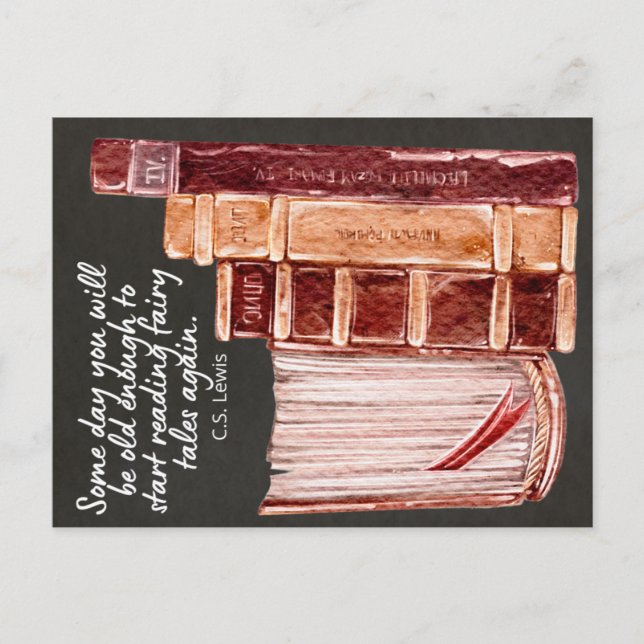 Some day you will
be old enough to
start reading fairy
tales again.
C.S. Lewis
IV.